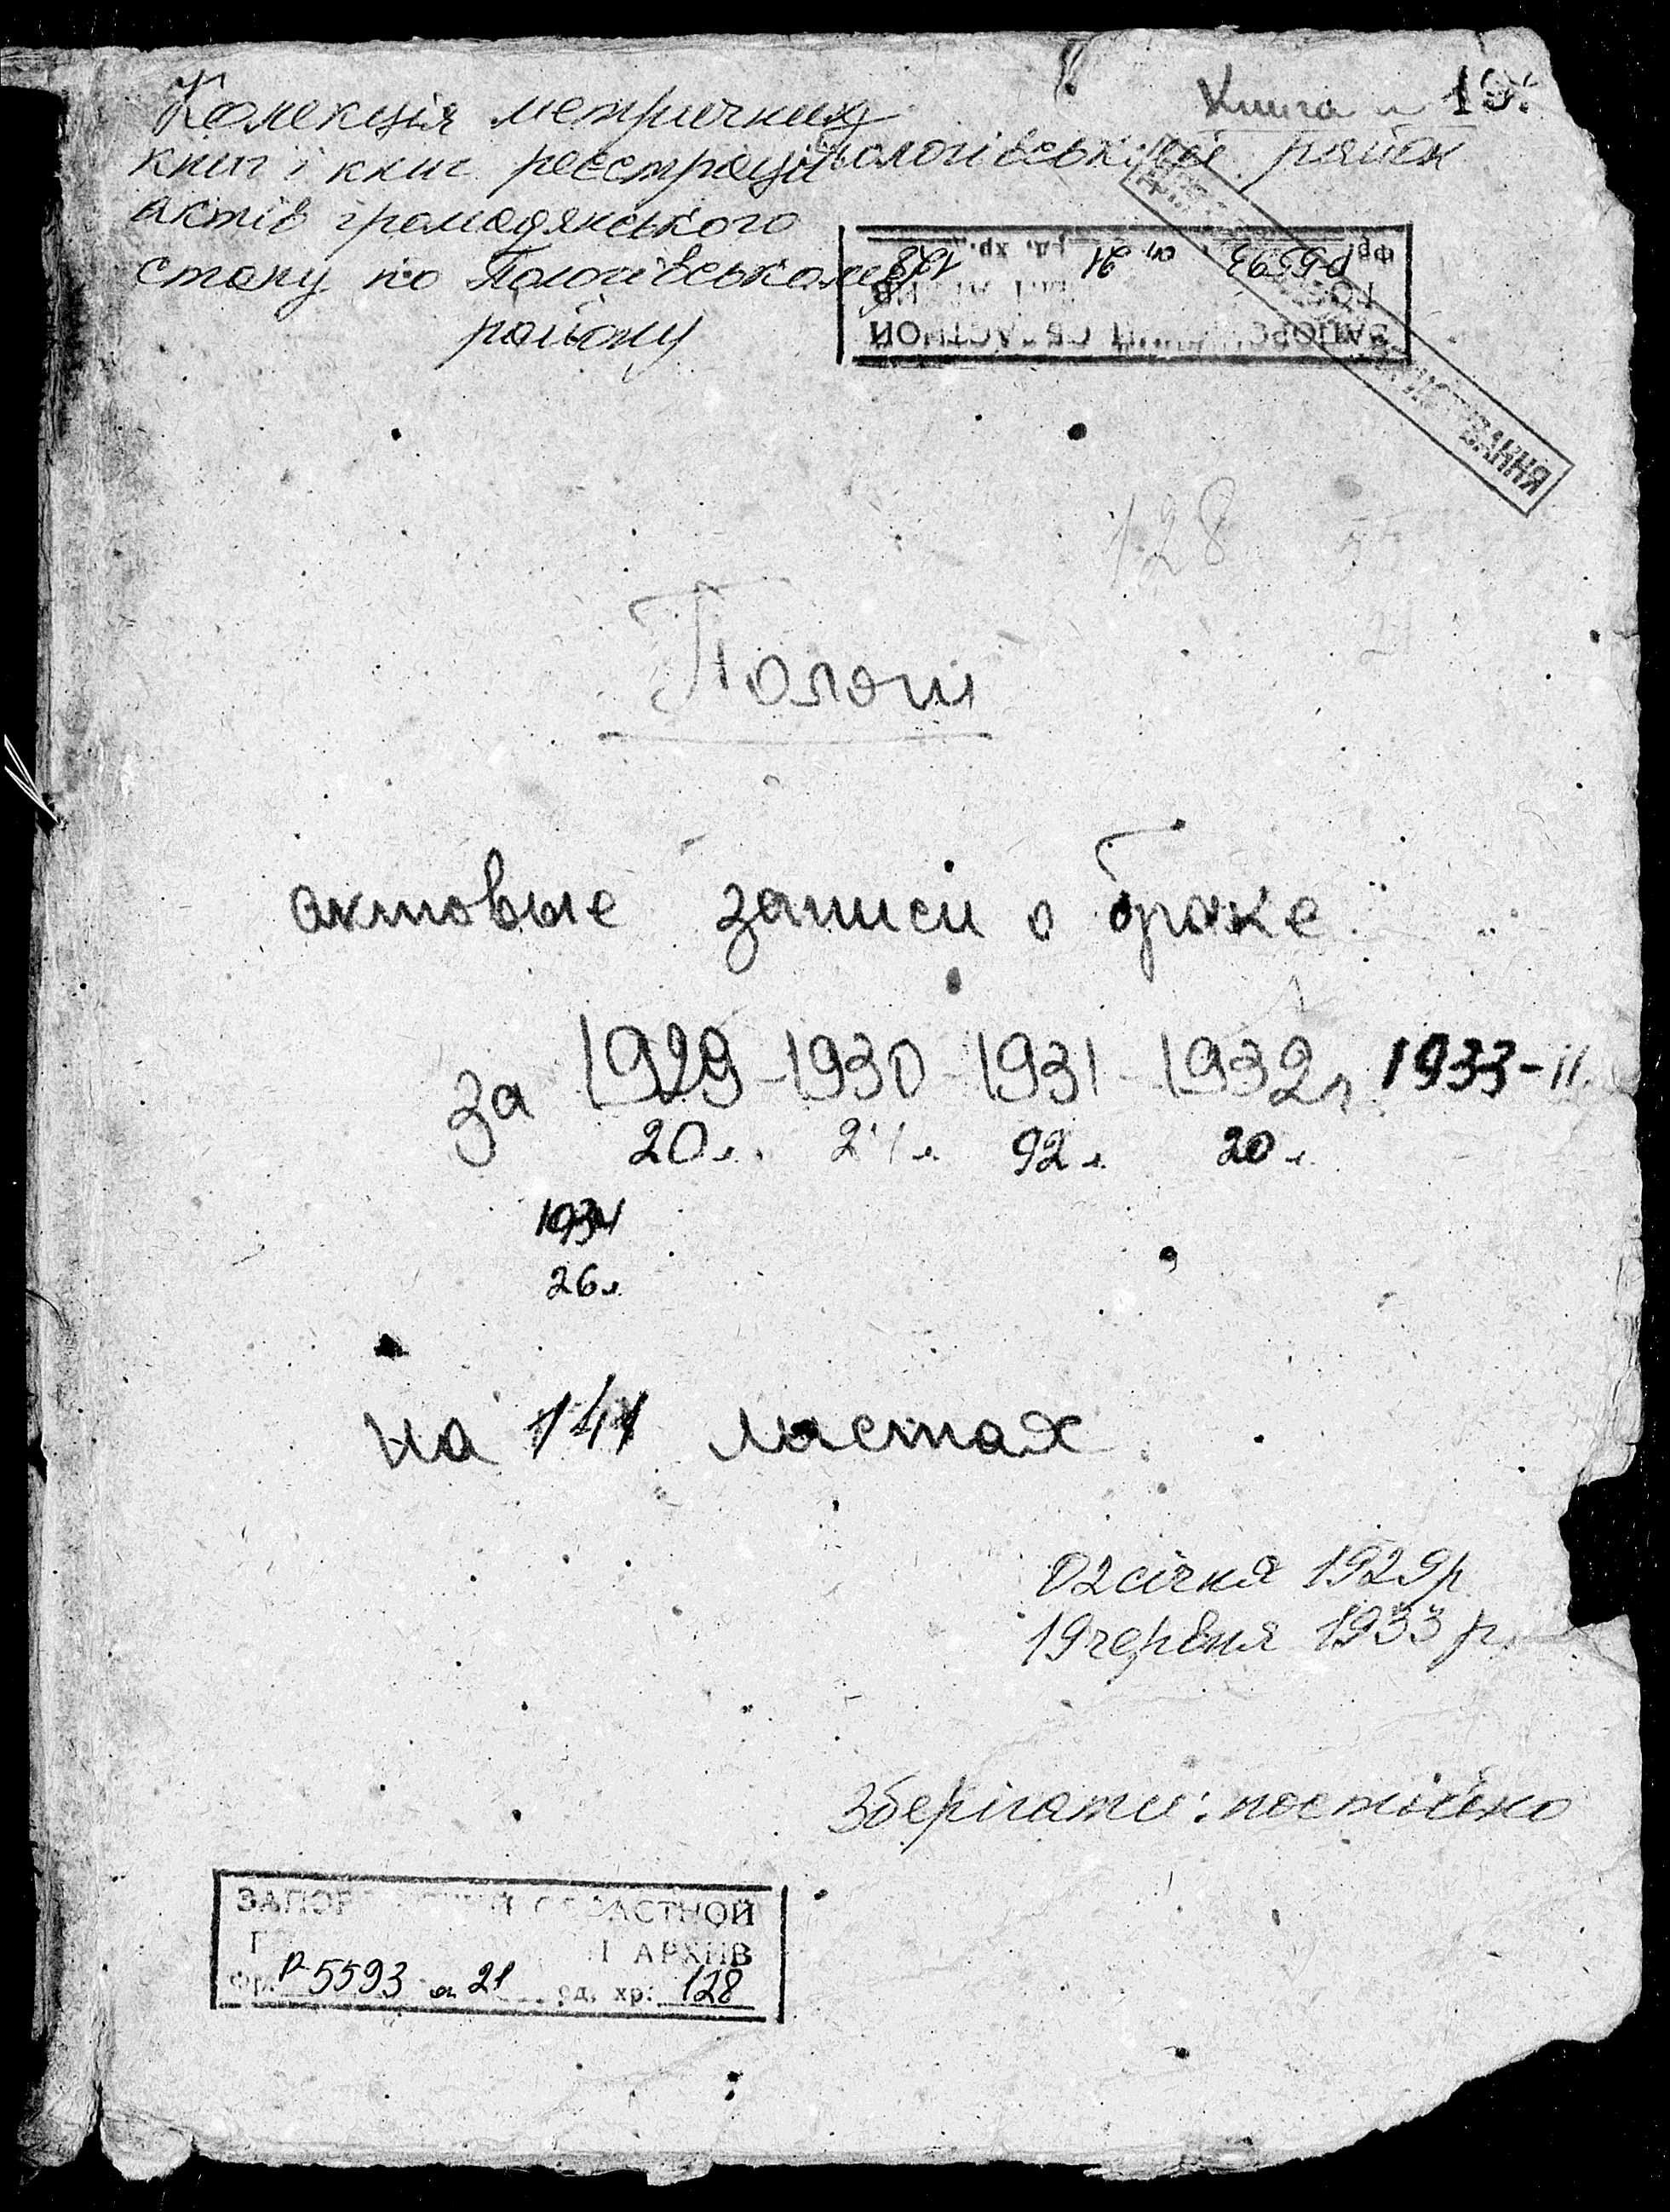 Книга № 19.
Колекція метричних
книг і книг реєстрації Пологівський район
актів громадянського
стану по Пологівському
району
Фр. Р5593 оп. 21 ед. хр. 128
ЗАПОР ОБЛАСТНОЙ
128
21
Пологи
актовые записи о браке
за 1929-1930-1931-1932 г. 1933-11.
20 л. 21 л. 92 л. 20 л.
1934
26 л.
на 141 листах
02 січня 1929 р
19 червня 1933 р.
Зберігати: постійно
ЗАПОР ОБЛАСТНОЙ
Г АРХИВ
Фр. Р-5593 оп. 21 ед. хр. 128